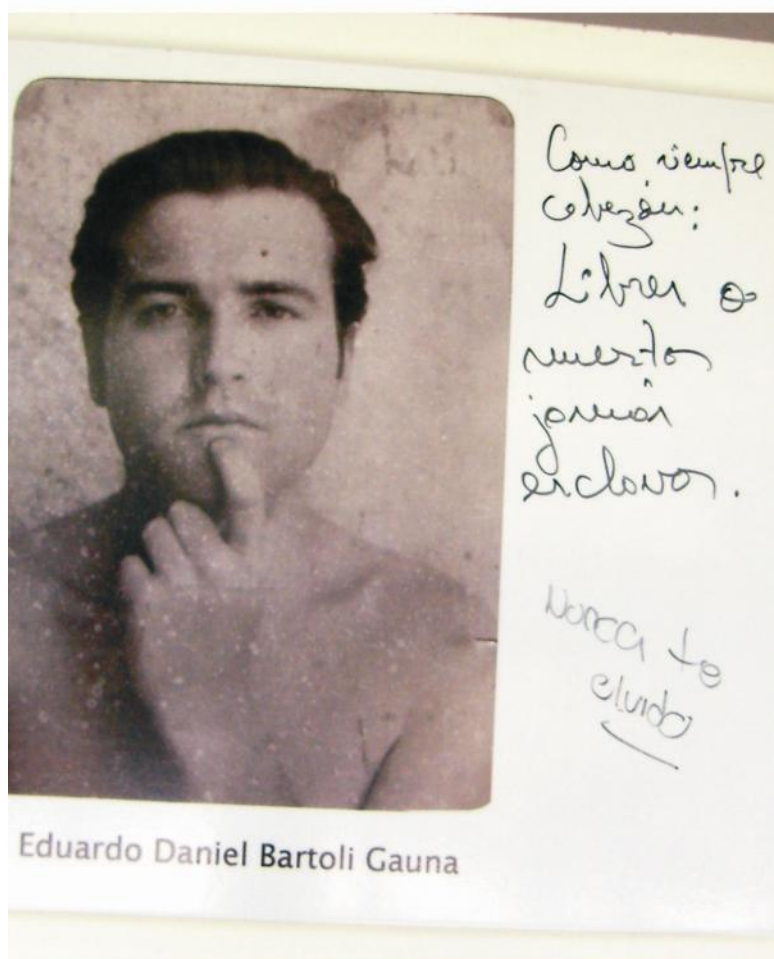 Como siempre
cabezón:
Libres o
muertos
jamás
esclavos.
Nunca te
olvido
Eduardo Daniel Bartoli Gauna